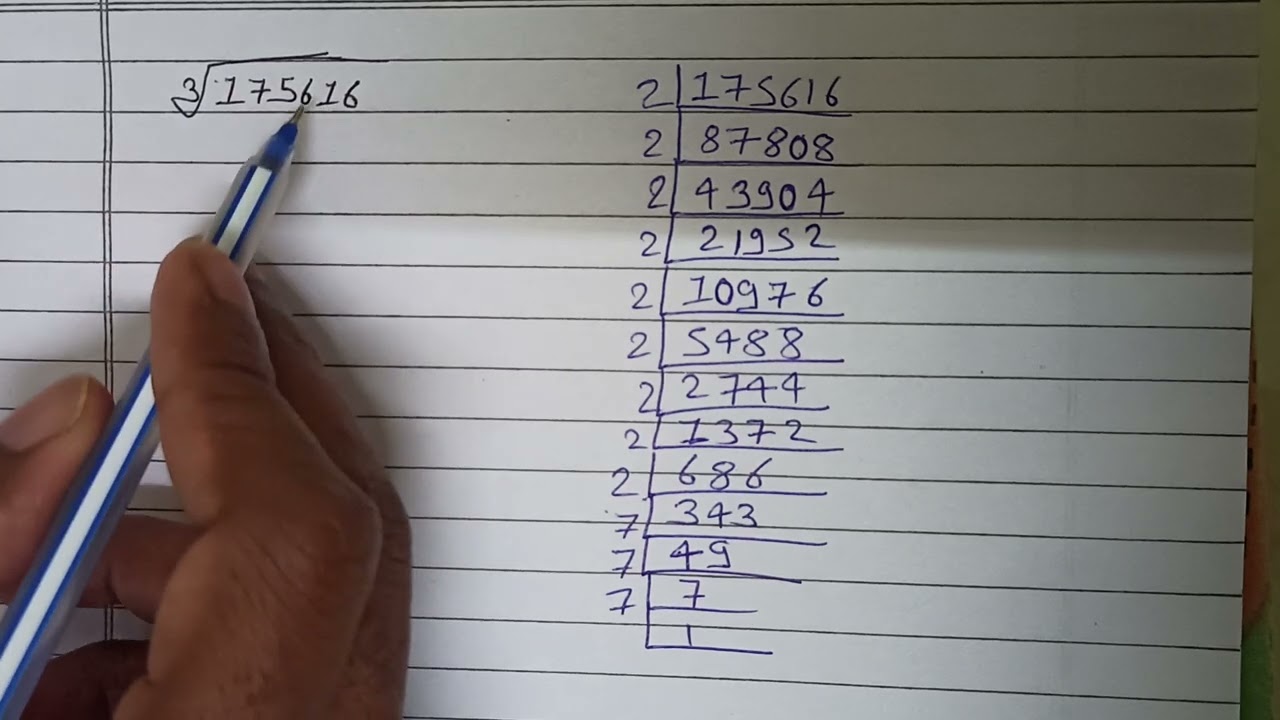 ∛175616
2 | 175616
2 | 87808
2 | 43904
2 | 21952
2 | 10976
2 | 5488
2 | 2744
2 | 1372
2 | 686
7 | 343
7 | 49
7 | 7
| 1